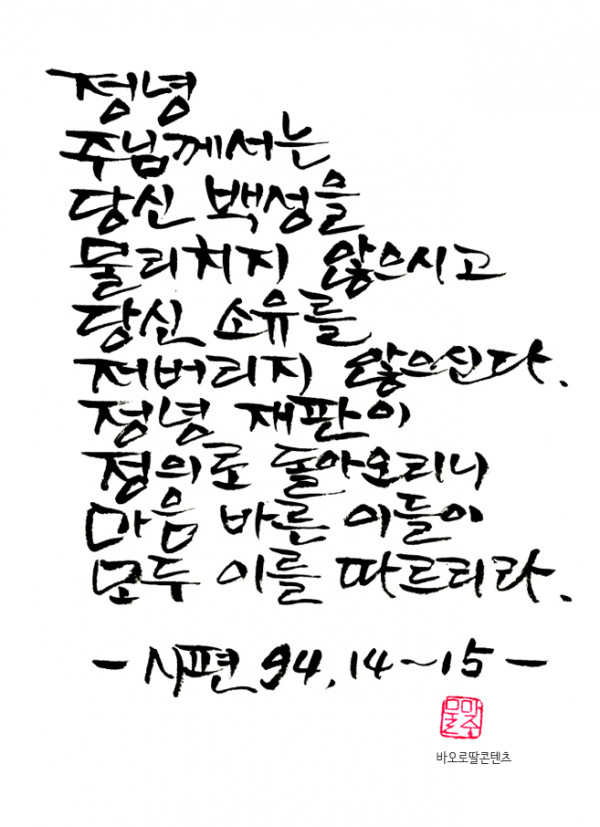 정녕
주님께서는
당신 백성을
물리치지 않으시고
당신 소유를
저버리지 않으신다.
정녕 재판이
정의로 돌아오리니
마음 바른 이들이
모두 이를 따르리라.
- 시편 94, 14~15 -
바오로딸콘텐츠